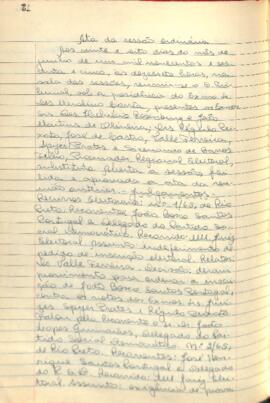 82
Ata da sessão ordinária
Aos vinte e oito dias do mês de
junho de um mil novecentos e ses-
senta e cinco, às dezesseis horas, na
sala das sessões, reuniu-se o Tri-
bunal, sob a presidência do Exmo. Se-
nhor
presentes os Senho-
res e João
Martins de Oliveira; Drs.
José de Castro, Valle Ferreira,
Prates e
Procurador Regional Eleitoral,
substituto. Aberta a sessão, foi
lida e aprovada a ata da reu-
nião anterior. Julgamentos.
Recursos eleitorais: Nº 1/65, de Rio
Preto. Recorrentes João Bosco Santos
Portugal e Delegado do Partido So-
cial Democrático. Recorrido: MM. Juiz
Eleitoral. Assunto: indeferimento de
pedido de inscrição eleitoral. Relator:
Valle Ferreira. Decisão: deram
provimento para ordenar a inscri-
ção de João Bosco Santos Portugal,
contra os votos dos Exmos. Srs. Juí-
zes Prates e
pelo recorrente o Sr. Dr. João
Lopes Guimarães, delegado do Par-
tido Social Democrático. Nº 2/65,
de Rio Preto. Recorrentes: José Hen-
rique Santos Portugal e Delegado
do P.S.D. Recorrido: MM. Juiz Elei-
toral. Assunto: exigência de prova